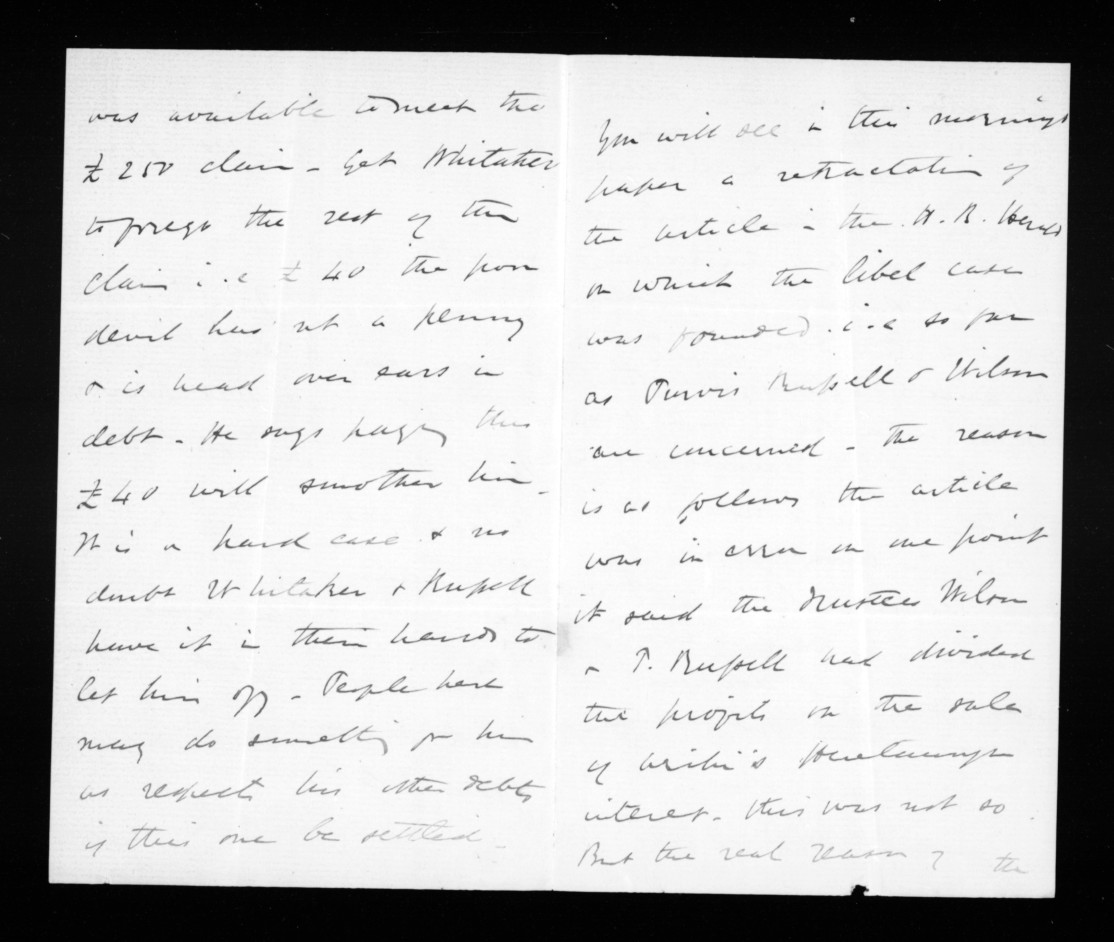 was available to meet the
£250 claim - Get Whitaker
to forego the rest of the
claim i.e £40 the poor
devil has not a penny
& is head over ears in
debt - He says paying this
£40 will smother him -
It is a hard case & no
doubt Whitaker & Russell
have it in their hands to
let him off - People here
may do something for him
as respects his other debts
if this one be settled -
You will see in this mornings
paper a retractation of
the article in the H. B. Herald
on which the libel case
was founded i.e so far
as Purvis Russell & Wilson
are concerned - the reason
is as follows the article
was in error on one point
it said the trustees Wilson
& P. Russell had divided
the profits on the sale
of Heretaunga
interest - this was not so
But the real reason of the